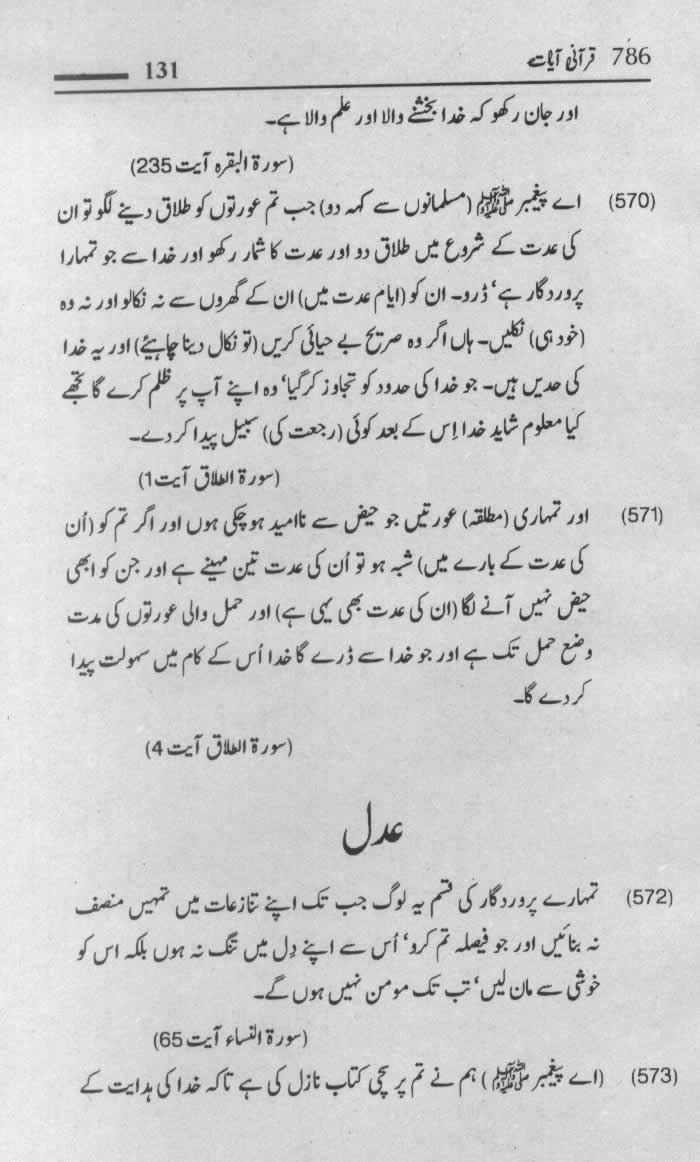 786 قرآنی آیات 131
اور جان رکھو کہ خدا بخشنے والا اور علم والا ہے۔
(سورۃ البقرہ آیت 235)
(570) اے پیغمبر ﷺ (مسلمانوں سے کہہ دو) جب تم عورتوں کو طلاق دینے لگو تو ان
کی عدت کے شروع میں طلاق دو اور عدت کا شمار رکھو اور خدا سے جو تمہارا
پروردگار ہے‘ ڈرو۔ ان کو (ایام عدت میں) ان کے گھروں سے نہ نکالو اور نہ وہ
(خود ہی) نکلیں۔ ہاں اگر وہ صریح بے حیائی کریں (تو نکال دینا چاہیئے) اور یہ خدا
کی حدیں ہیں۔ جو خدا کی حدود کو تجاوز کر گیا‘ وہ اپنے آپ پر ظلم کرے گا تجھے
کیا معلوم شاید خدا اِس کے بعد کوئی (رجعت کی) سبیل پیدا کر دے۔
(سورۃ الطلاق آیت 1)
(571) اور تمہاری (مطلقہ) عورتیں جو حیض سے ناامید ہو چکی ہوں اور اگر تم کو (اُن
کی عدت کے بارے میں) شبہ ہو تو اُن کی عدت تین مہینے ہے اور جن کو ابھی
حیض نہیں آنے لگا (ان کی عدت بھی یہی ہے) اور حمل والی عورتوں کی مدت
وضع حمل تک ہے اور جو خدا سے ڈرے گا خدا اُس کے کام میں سہولت پیدا
کر دے گا۔
(سورۃ الطلاق آیت 4)
عدل
(572) تمہارے پروردگار کی قسم یہ لوگ جب تک اپنے تنازعات میں تمہیں منصف
نہ بنائیں اور جو فیصلہ تم کرو‘ اُس سے اپنے دِل میں تنگ نہ ہوں بلکہ اس کو
خوشی سے مان لیں‘ تب تک مومن نہیں ہوں گے۔
(سورۃ النساء آیت 65)
(573) (اے پیغمبر ﷺ) ہم نے تم پر سچی کتاب نازل کی ہے تاکہ خدا کی ہدایت کے